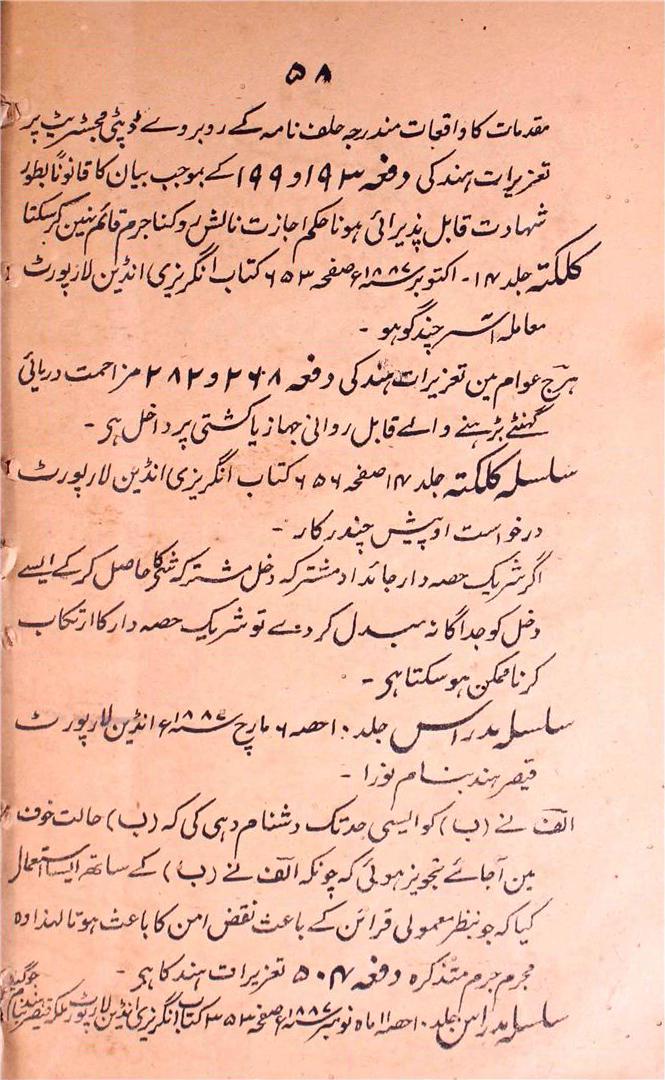 ۵۸
مقدمات کا واقعات مندرجہ حلف نامہ کے روبروے ڈپٹی مجسٹریٹ پر
تعزیرات ہند کی دفعہ ۱۹۳ و ۱۹۹ کے بموجب بیان کا قانوناً بطور
شہادت قابل پذیرائی ہونا حکم اجازت نالش روکنا جرم قائم نہین کرسکتا
کلکتہ جلد ۱۴ - اکتوبر سنہ ۱۸۸۷ء صفحہ ۶۵۳ کتاب انگریزی انڈین لا رپورٹ
معاملہ اشر چندگوہو -
ہرج عوام مین تعزیرات ہند کی دفعہ ۲۶۸ و ۲۸۲ مزاحمت دریائی
گھٹنے بڑہنے والے قابل روانی جہاز یا کشتی پر داخل ہی -
سلسلہ کلکتہ جلد ۱۴ صفحہ ۶۵۶ کتاب انگریزی انڈین لا رپورٹ
درخواست اوپیش چندرکار -
اگر شریک حصہ دار جائداد مشترکہ دخل مشترکہ شی کا حاصل کر کے ایسے
دخل کو جداگانہ مبدل کردے تو شریک حصہ دار کا ارتکاب
کرنا ممکن ہو سکتا ہی -
سلسلہ مدراس جلد ۱۰ حصہ ۶ مارچ سنہ ۱۸۸۷ء انڈین لا رپورٹ
قیصر ہند بنام نورا -
الف نے (ب) کو ایسی حد تک دشنام دہی کی کہ (ب) حالت خوف
مین آجائے تجویز ہوئی کہ چونکہ الف نے (ب) کے ساتھ ایسا استعمال
کیا کہ جو بنظر معمولی قرائن کے باعث نقض امن کا باعث ہوتا لہذا وہ
مجرم جرم متذکرہ دفعہ ۵۰۴ تعزیرات ہند کا ہی -
سلسلہ مدراس جلد ۱۰ حصہ ۱۱ ماہ نومبر سنہ ۱۸۸۷ء صفحہ ۳۵۳ کتاب انگریزی انڈین لا رپورٹ ملکہ قیصر ہند بنام